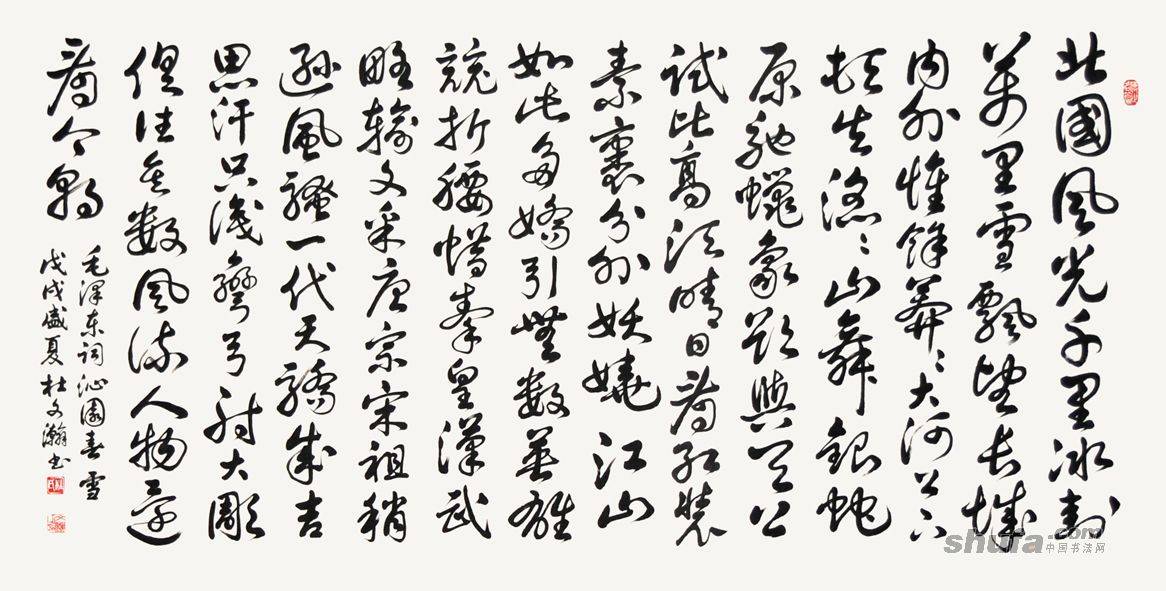 北國風光千里冰封
萬里雪飄望長城
内外惟餘莽莽大河上下
頓失滔滔山舞銀蛇
原馳蠟象欲與天公
試比高須晴日看紅裝
素裹分外妖嬈江山
如此多嬌引無數英雄
競折腰惜秦皇漢武
略輸文采唐宗宋祖稍
遜風騷一代天驕成吉
思汗只識彎弓射大雕
俱往矣數風流人物還
看今朝
毛澤東词沁園春雪
戊戌盛夏杜文瀚书
shufa.com
中国书法网